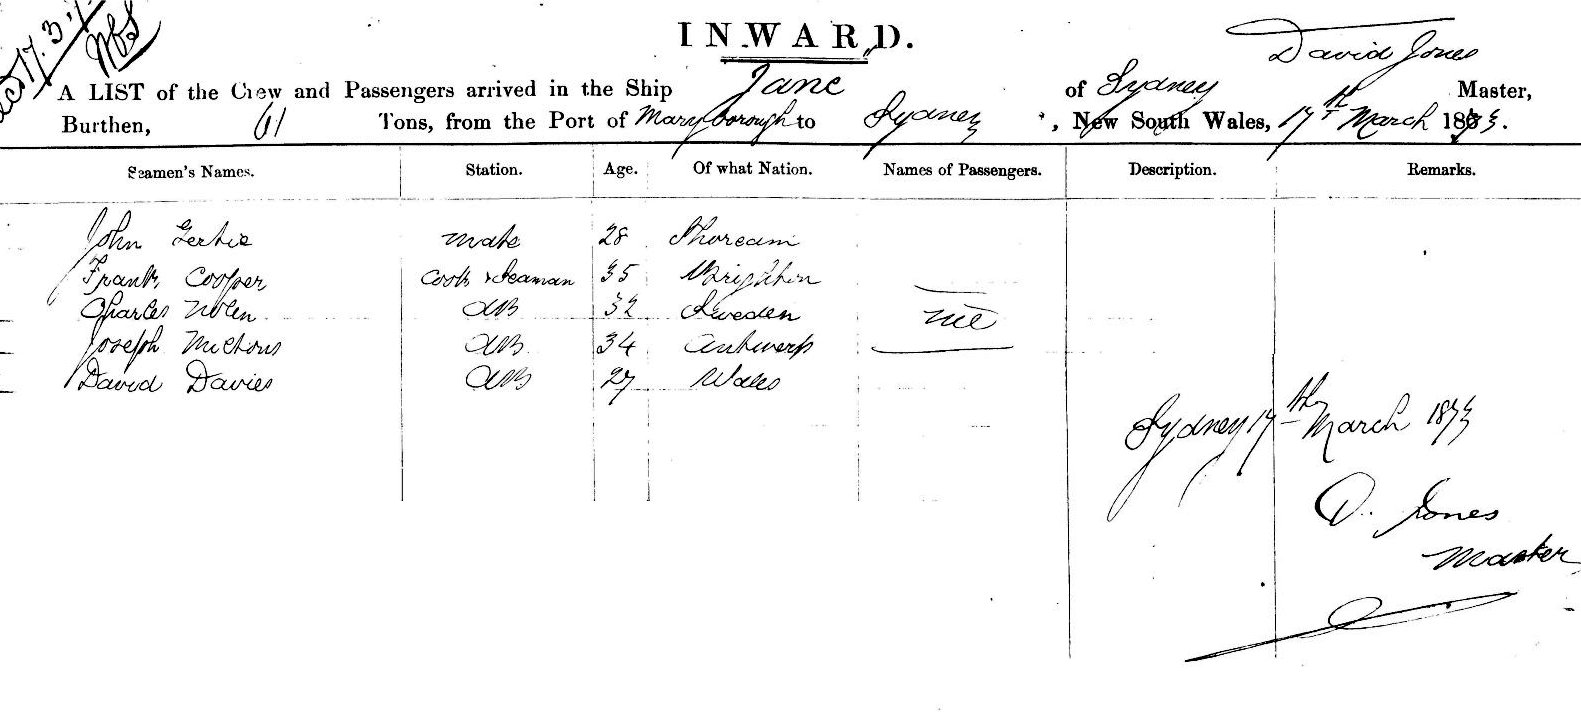 INWARD.
David Jones
A LIST of the Crew and Passengers arrived in the Ship Jane of Sydney Master,
Burthen, 61 Tons, from the Port of Maryborough to Sydney, New South Wales, 17th March 1873.
Seamen's Names. Station. Age. Of what Nation. Names of Passengers. Description. Remarks.
John mate 28 Shoreham
Frank Cooper Cook & Seaman 35 Brighton
Charles Nolen AB 32 Sweden Nil
Joseph AB 34 Antwerp
David Davies AB 27 Wales
Sydney 17th March 1873
D. Jones
Master